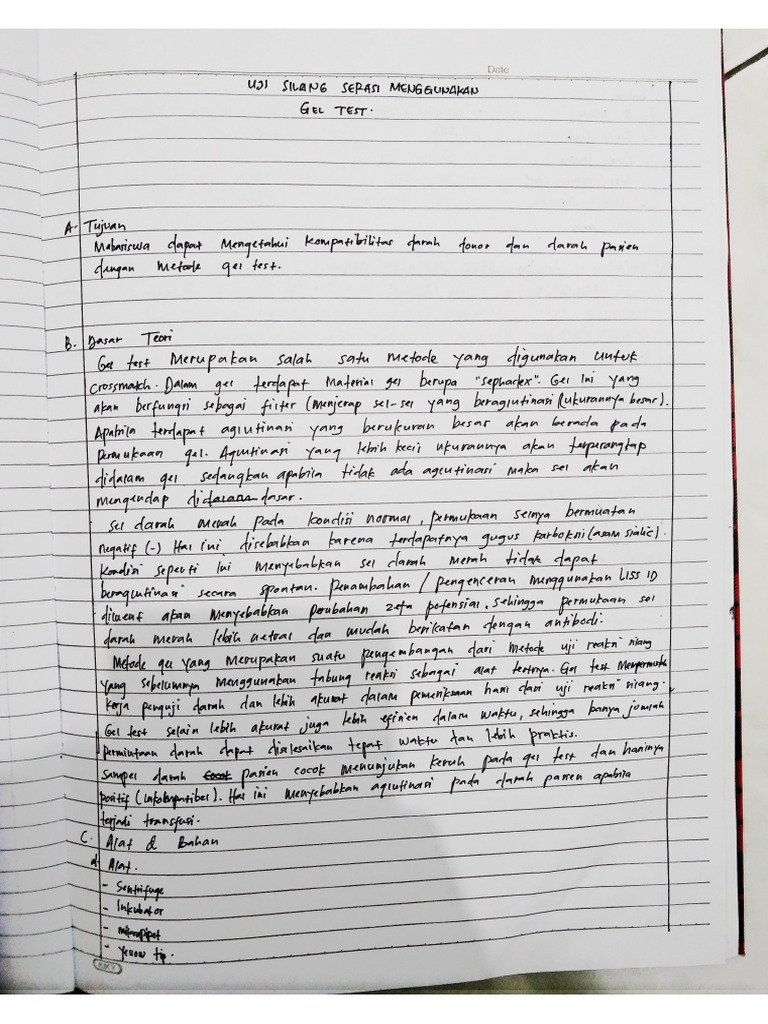 Date
UJI SILANG SERASI MENGGUNAKAN
GEL TEST.
A. Tujuan
Mahasiswa dapat Mengetahui kompatibilitas darah donor dan darah pasien
dengan metode gel test.
B. Dasar Teori
Gel test Merupakan salah satu metode yang digunakan untuk
crossmatch. Dalam gel terdapat Material gel berupa "sephadex". Gel ini yang
akan berfungsi sebagai filter (Menjerap sel-sel yang beraglutinasi (ukurannya besar).
Apabila terdapat aglutinasi yang berukuran besar akan berada pada
permukaan gel. Aglutinasi yang lebih kecil ukurannya akan terperangkap
didalam gel sedangkan apabila tidak ada aglutinasi maka sel akan
mengendap didalam dasar.
Sel darah merah pada kondisi normal, permukaan selnya bermuatan
negatif (-) Hal ini disebabkan karena terdapatnya gugus karboksil (asam sialic).
Kondisi seperti ini menyebabkan sel darah merah tidak dapat
beraglutinasi secara spontan. Penambahan / pengenceran menggunakan LISS ID
diluent akan menyebabkan perubahan zeta potensial, sehingga permukaan sel
darah merah lebih netral dan mudah berikatan dengan antibodi.
Metode gel yang merupakan suatu pengembangan dari metode uji reaksi silang
yang sebelumnya menggunakan tabung reaksi sebagai alat tesnya. Gel test Mempermudah
kerja penguji darah dan lebih akurat dalam pemeriksaan hasil dari uji reaksi silang.
Gel test selain lebih akurat juga lebih efisien dalam waktu, sehingga banya jumlah
permintaan darah dapat diselesaikan tepat waktu dan lebih praktis.
Sampel darah cocok pasien cocok menunjukan keruh pada gel test dan hasilnya
positif (inkompatibel). Hal ini menyebabkan aglutinasi pada darah pasien apabila
terjadi transfusi.
C. Alat & Bahan
a. Alat.
- Sentrifuge
- Inkubator
- mikropipet
- Yellow tip.
KKY